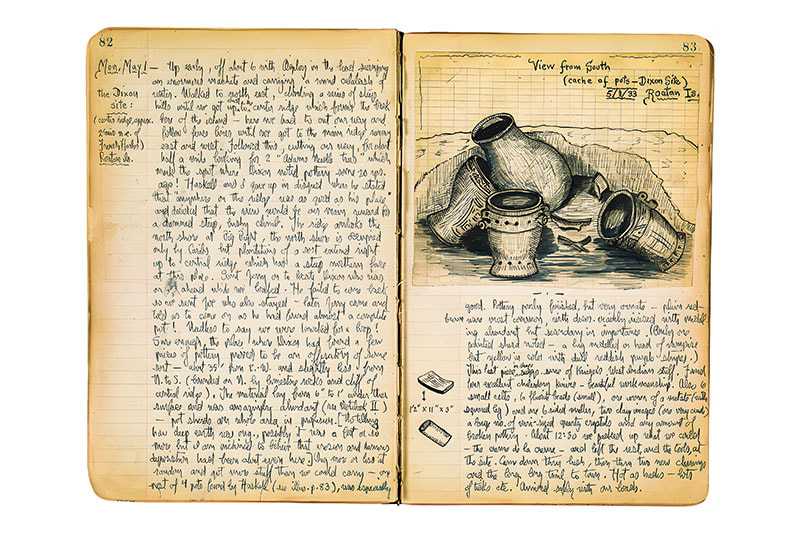 82
Mon. May 1 — Up early, off about 6 with
an enormous machete and carrying a
water. Walked to north east, climbing a series of
the Dixon
Site:
hills until we got up to central ridge which forms the back
bone of the island — here we had to cut our way and
follow
until we got to the main ridge running
east and west. Followed this, cutting our way, for about
half a mile looking for 2 "Adams Needle trees" which
mark the spot where Dixon noted pottery some 20 yrs.
ago! Haskell and I gave up in disgust when he stated
that anywhere on the ridge was as good as his place
and decided that the view would be our main reward for
a damned steep, climb. The ridge overlooks the
north shore at Big Bight, the north shore is occupied
only by Caribs but plantations of a sort extend right
up to central ridge which has a steep northern face
at this place. Sent Jerry on to locate Dixon who was
on ahead while we loafed. He failed to come back
so we sent Joe who also stayed — later Jerry came and
told us to come on as he had found almost a complete
pot! Needless to say we were
Sure enough, the place where Dixon had found a few
pieces of pottery proved to be an offeratory of some
sort — about 35' from E.-W. and slightly less from
N. to S. (bounded on N. by limestone rocks and cliff of
central ridge). The material lay from 6" to 1' under the
surface and was amazingly abundant (see Notebook II)
— pot sherds over whole area in profusion. [No telling
how deep earth was orig., possibly it was a foot or so
more but I am inclined to believe that erosion and humus
deposition had been about even here.] Dug more or less at
random and got more stuff than we could carry — one
nest of 4 pots found by Haskell (see illus. p. 83), was especially
83
View from South
(cache of pots — Dixon Site)
5/1/33 Roatan Is.
good. Pottery poorly finished but very ornate — plain red-
brown ware most common with
incised with modelling
abundant but secondary in importance. (Only one
painted sherd noted — a big modelled
but yellow in color with dull reddish purple stripes.)
This last
four excellent obsidian knives — beautiful workmanship. Also 6
small celts, 10
beads (small), one corner of a metate (with
squared leg) and one
12" x 11" x 3"
a large no. of
quartz crystals and any amount of
broken pottery. About 12:30 we packed up what we could
— the creme de la creme — and left the rest and the tools, at
the site. Came down thru bush, then thru two new clearings
and the long, long trail to town. Hot as hades — lots
of ticks etc. Arrived safely with our loads.